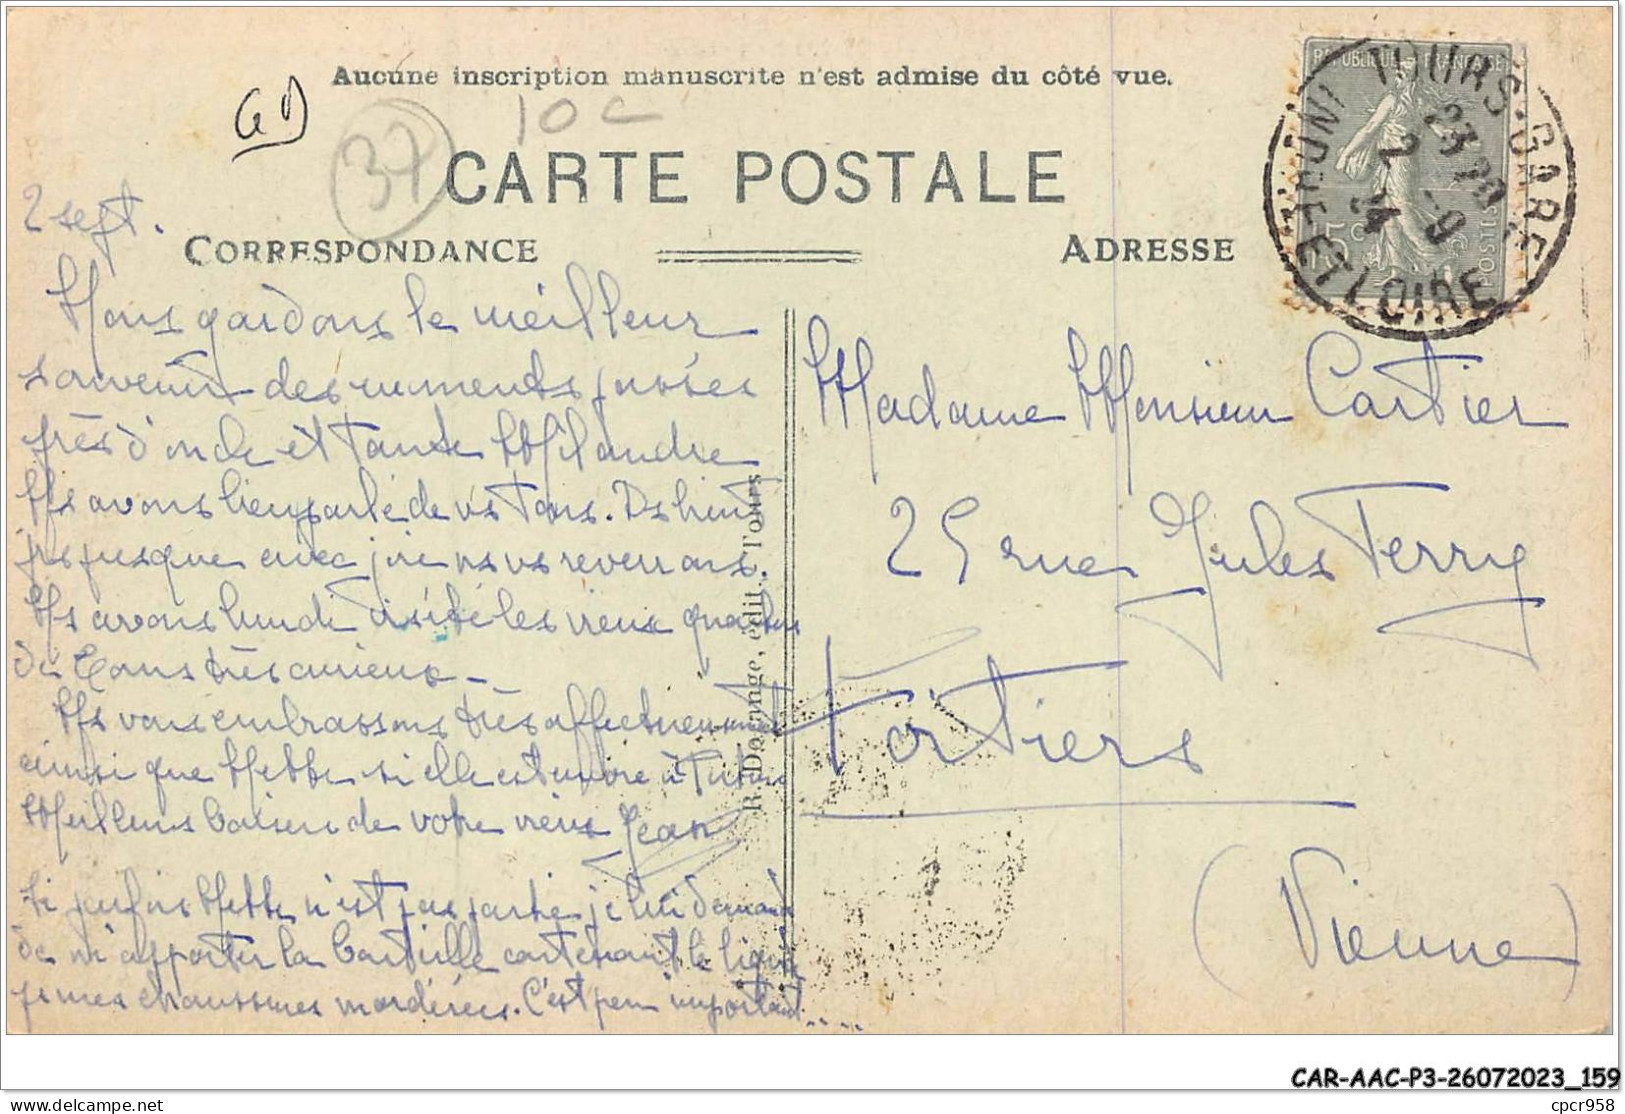 Aucune inscription manuscrite n'est admise du côté vue.
GD
37
10 C
CARTE POSTALE
2 sept.
CORRESPONDANCE
ADRESSE
REPUBLIQUE FRANÇAISE
POSTES
15c
TOURS-GARE
23 20
2 - 9
24
INDRE ET LOIRE
Nous gardons le meilleur
souvenir des moments passés
près d'oncle et tante
Ns avons bien parlé de vs tous. Ds huit
jrs jusque avec joie ns vs reverrons.
Ns avons lundi visité les vieux quartiers
de Tours très curieux -
Ns vous embrassons très affectueusement
ainsi que si elle est encore à
Meilleurs baisers de votre vieux Jean
Si parfois n'est pas partie je lui demande
de m'apporter la bouteille contenant le liquide
pr mes chaussures mordorées. C'est peu important....
Madame Monsieur Cartier
25 rue Jules Ferry
Poitiers
(Vienne)
R. Dorange, édit. Tours
CAR-AAC-P3-26072023_159
delcampe.net
cpcr958